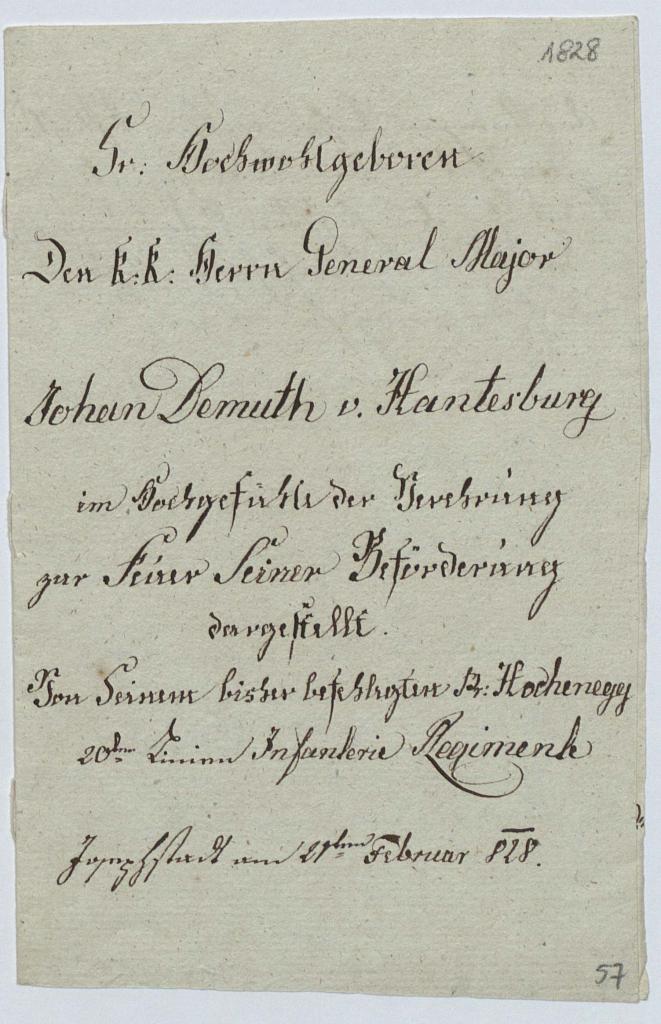 1828
Sr. Hochwohlgeboren
Den k. k. Herrn General Major
Johan Demuth v. Hantesburg
im Hochgefühle der Verehrung
zur Feier Seiner Beförderung
dargestellt.
Von Seinem bisher befehligten B: Hochenegg
20ten Linien Infanterie Regimente
Josephstadt am 21ten Februar 828.
57